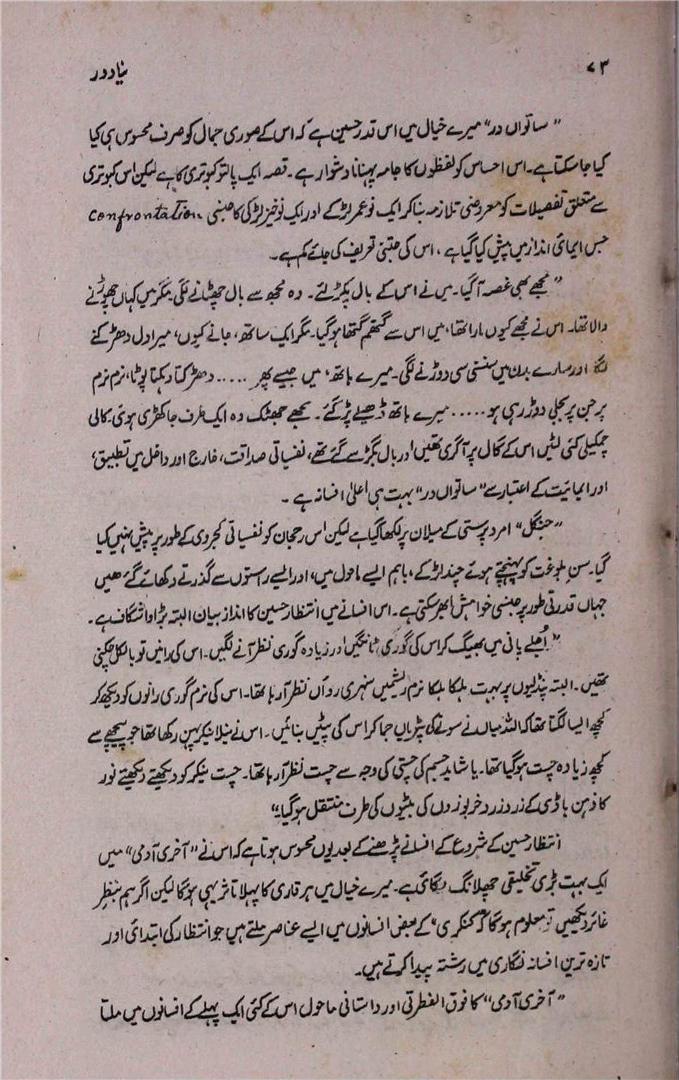 ۷۳
نیا دور
”ساتواں در“ میرے خیال میں اس قدر حسین ہے کہ اس کے صوری جمال کو صرف محسوس ہی کیا
کیا جا سکتا ہے۔ اس احساس کو لفظوں کا جامہ پہنانا دشوار ہے۔ قصہ ایک پالتو کبوتری کا ہے لیکن اس کبوتری
سے متعلق تفصیلات کو معروضی تلازمہ بنا کر ایک نو عمر لڑکے اور ایک نوخیز لڑکی کا جنسی confrontation
جس ایمائی انداز میں پیش کیا گیا ہے، اس کی جتنی تعریف کی جائے کم ہے۔
”مجھے بھی غصہ آ گیا۔ میں نے اس کے بال پکڑ لئے۔ وہ مجھ سے بال چھٹانے لگی۔ مگر میں کہاں چھوڑنے
والا تھا۔ اس نے مجھے کیوں مارا تھا، میں اس سے گتھم گتھا ہو گیا۔ مگر ایک ساتھ، جانے کیوں، میرا دل دھڑکنے
لگا اور سارے بدن میں سنسنی سی دوڑنے لگی۔ میرے ہاتھ، میں جیسے پھر ..... دھڑکتا دہکتا پوٹا، نرم نرم
پر جن پر بجلی دوڑ رہی ہو ..... میرے ہاتھ ڈھیلے پڑ گئے۔ مجھے جھٹک وہ ایک طرف جا کھڑی ہوئی۔ کالی
چمکیلی کئی لٹیں اس کے گال پر آ گری تھیں اور بال بگڑ سے گئے تھے، نفسیاتی صداقت، خارج اور داخل میں تطبیق،
اور ایمائیت کے اعتبار سے ”ساتواں در“ بہت ہی اعلیٰ افسانہ ہے۔
”جنگل“ امرد پرستی کے میلان پر لکھا گیا ہے لیکن اس رجحان کو نفسیاتی کجروی کے طور پر پیش نہیں کیا
گیا۔ سن بلوغت کو پہنچتے ہوئے چند لڑکے، باہم ایسے ماحول میں، اور ایسے راستوں سے گذرتے دکھائے گئے ھیں
جہاں قدرتی طور پر جنسی خواہش ابھر سکتی ہے۔ اس افسانے میں انتظار حسین کا انداز بیان البتہ بڑا واشگاف ہے۔
”اُجلے پانی میں بھیگ کر اس کی گوری ٹانگیں اور زیادہ گوری نظر آنے لگیں۔ اس کی رانیں تو بالکل چکنی
تھیں۔ البتہ پنڈلیوں پر بہت ہلکا ہلکا نرم ریشمیں سنہری رواں نظر آ رہا تھا۔ اس کی نرم گوری رانوں کو دیکھ کر
کچھ ایسا لگتا تھا کہ اللہ میاں نے سونے کی پڑیاں جما کر اس کی پیٹیں بنائیں۔ اس نے نیلا نیکر پہن رکھا تھا جو پیچھے سے
کچھ زیادہ چست ہو گیا تھا۔ یا شاید جسم کی چستی کی وجہ سے چست نظر آ رہا تھا۔ چست نیکر کو دیکھتے دیکھتے نور
کا ذہن باڈی کے زرد زرد خربوزوں کی بتیوں کی طرف منتقل ہو گیا۔“
انتظار حسین کے شروع کے افسانے پڑھنے کے بعد یوں محسوس ہوتا ہے کہ اس نے ”آخری آدمی“ میں
ایک بہت بڑی تخلیقی چھلانگ لگائی ہے۔ میرے خیال میں ہر قاری کا پہلا تاثر یہی ہو گا لیکن اگر ہم بنظرِ
غائر دیکھیں تو معلوم ہو گا کہ ”کنکری“ کے بعض افسانوں میں ایسے عناصر ملتے ہیں جو انتظار کی ابتدائی اور
تازہ ترین افسانہ نگاری میں رشتہ پیدا کرتے ہیں۔
”آخری آدمی“ کا فوق الفطرتی اور داستانی ماحول اس کے کئی ایک پہلے کے افسانوں میں ملتا